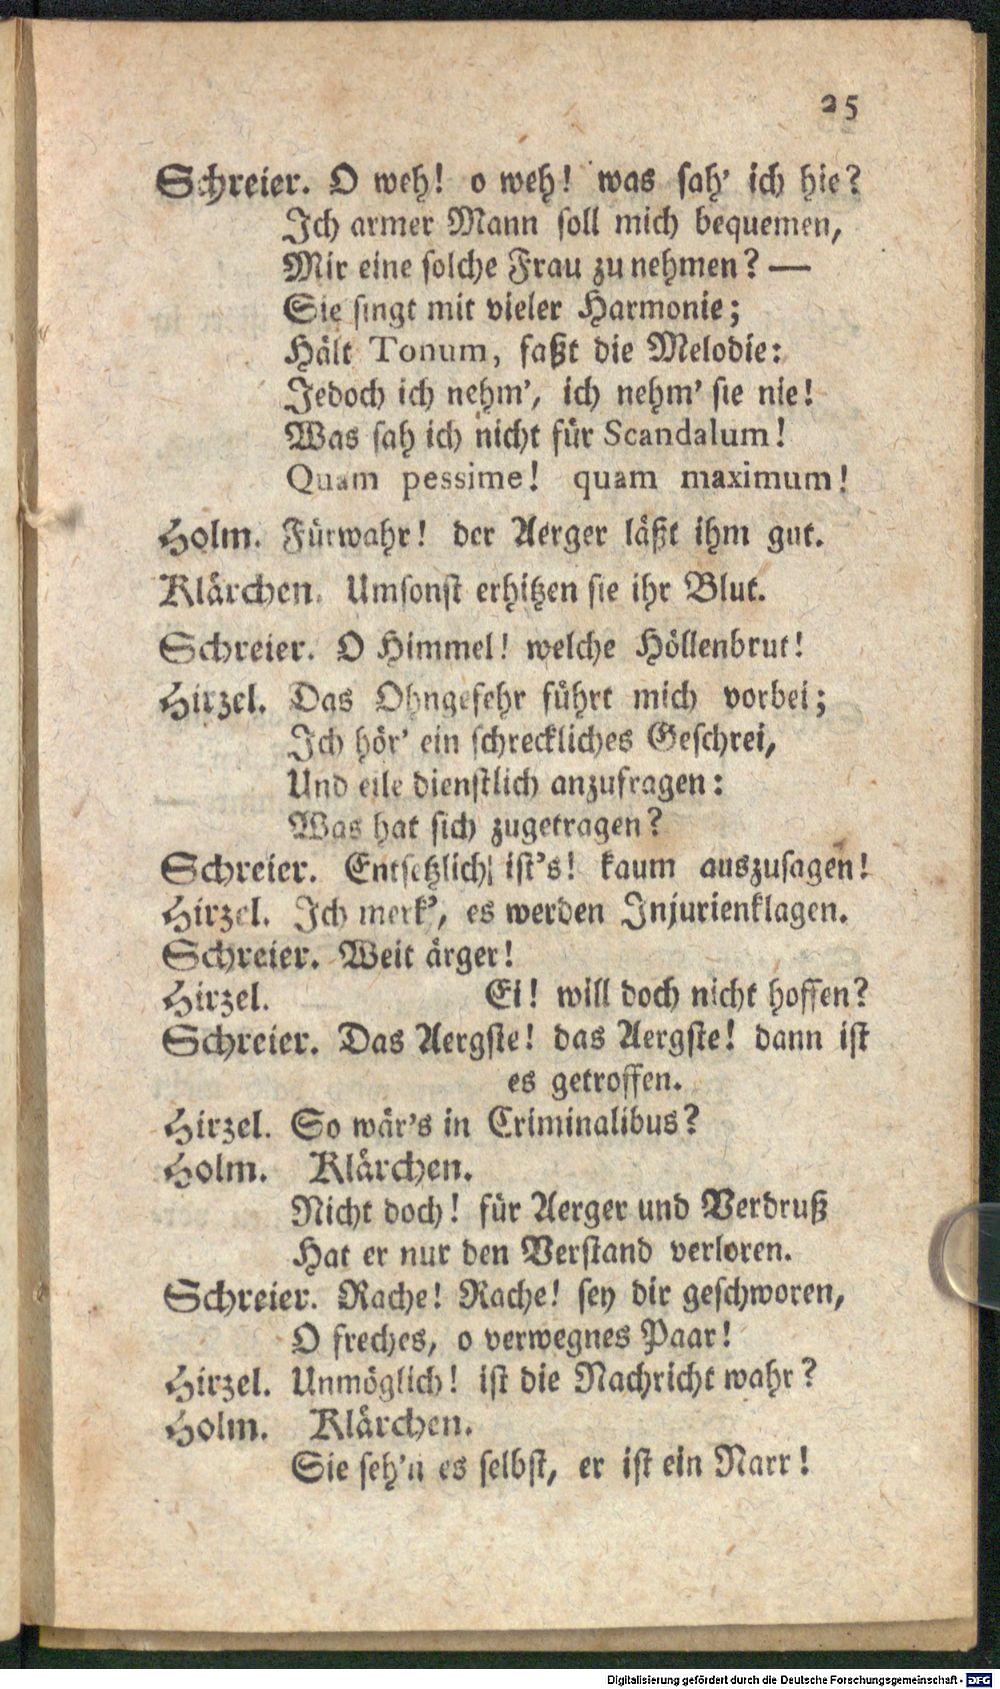 25
Schreier. O weh! o weh! was sah' ich hie?
Ich armer Mann soll mich bequemen,
Mir eine solche Frau zu nehmen? —
Sie singt mit vieler Harmonie;
Hält Tonum, faßt die Melodie:
Jedoch ich nehm', ich nehm' sie nie!
Was sah ich nicht für Scandalum!
Quam pessime! quam maximum!
Holm. Fürwahr! der Aerger läßt ihm gut.
Klärchen. Umsonst erhitzen sie ihr Blut.
Schreier. O Himmel! welche Höllenbrut!
Hirzel. Das Ohngefehr führt mich vorbei;
Ich hör' ein schreckliches Geschrei,
Und eile dienstlich anzufragen:
Was hat sich zugetragen?
Schreier. Entsetzlich ist's! kaum auszusagen!
Hirzel. Ich merk', es werden Injurienklagen.
Schreier. Weit ärger!
Hirzel. Ei! will doch nicht hoffen?
Schreier. Das Aergste! das Aergste! dann ist
es getroffen.
Hirzel. So wär's in Criminalibus?
Holm. Klärchen.
Nicht doch! für Aerger und Verdruß
Hat er nur den Verstand verloren.
Schreier. Rache! Rache! sey dir geschworen,
O freches, o verwegnes Paar!
Hirzel. Unmöglich! ist die Nachricht wahr?
Holm. Klärchen.
Sie seh'n es selbst, er ist ein Narr!
Digitalisierung gefördert durch die Deutsche Forschungsgemeinschaft - DFG